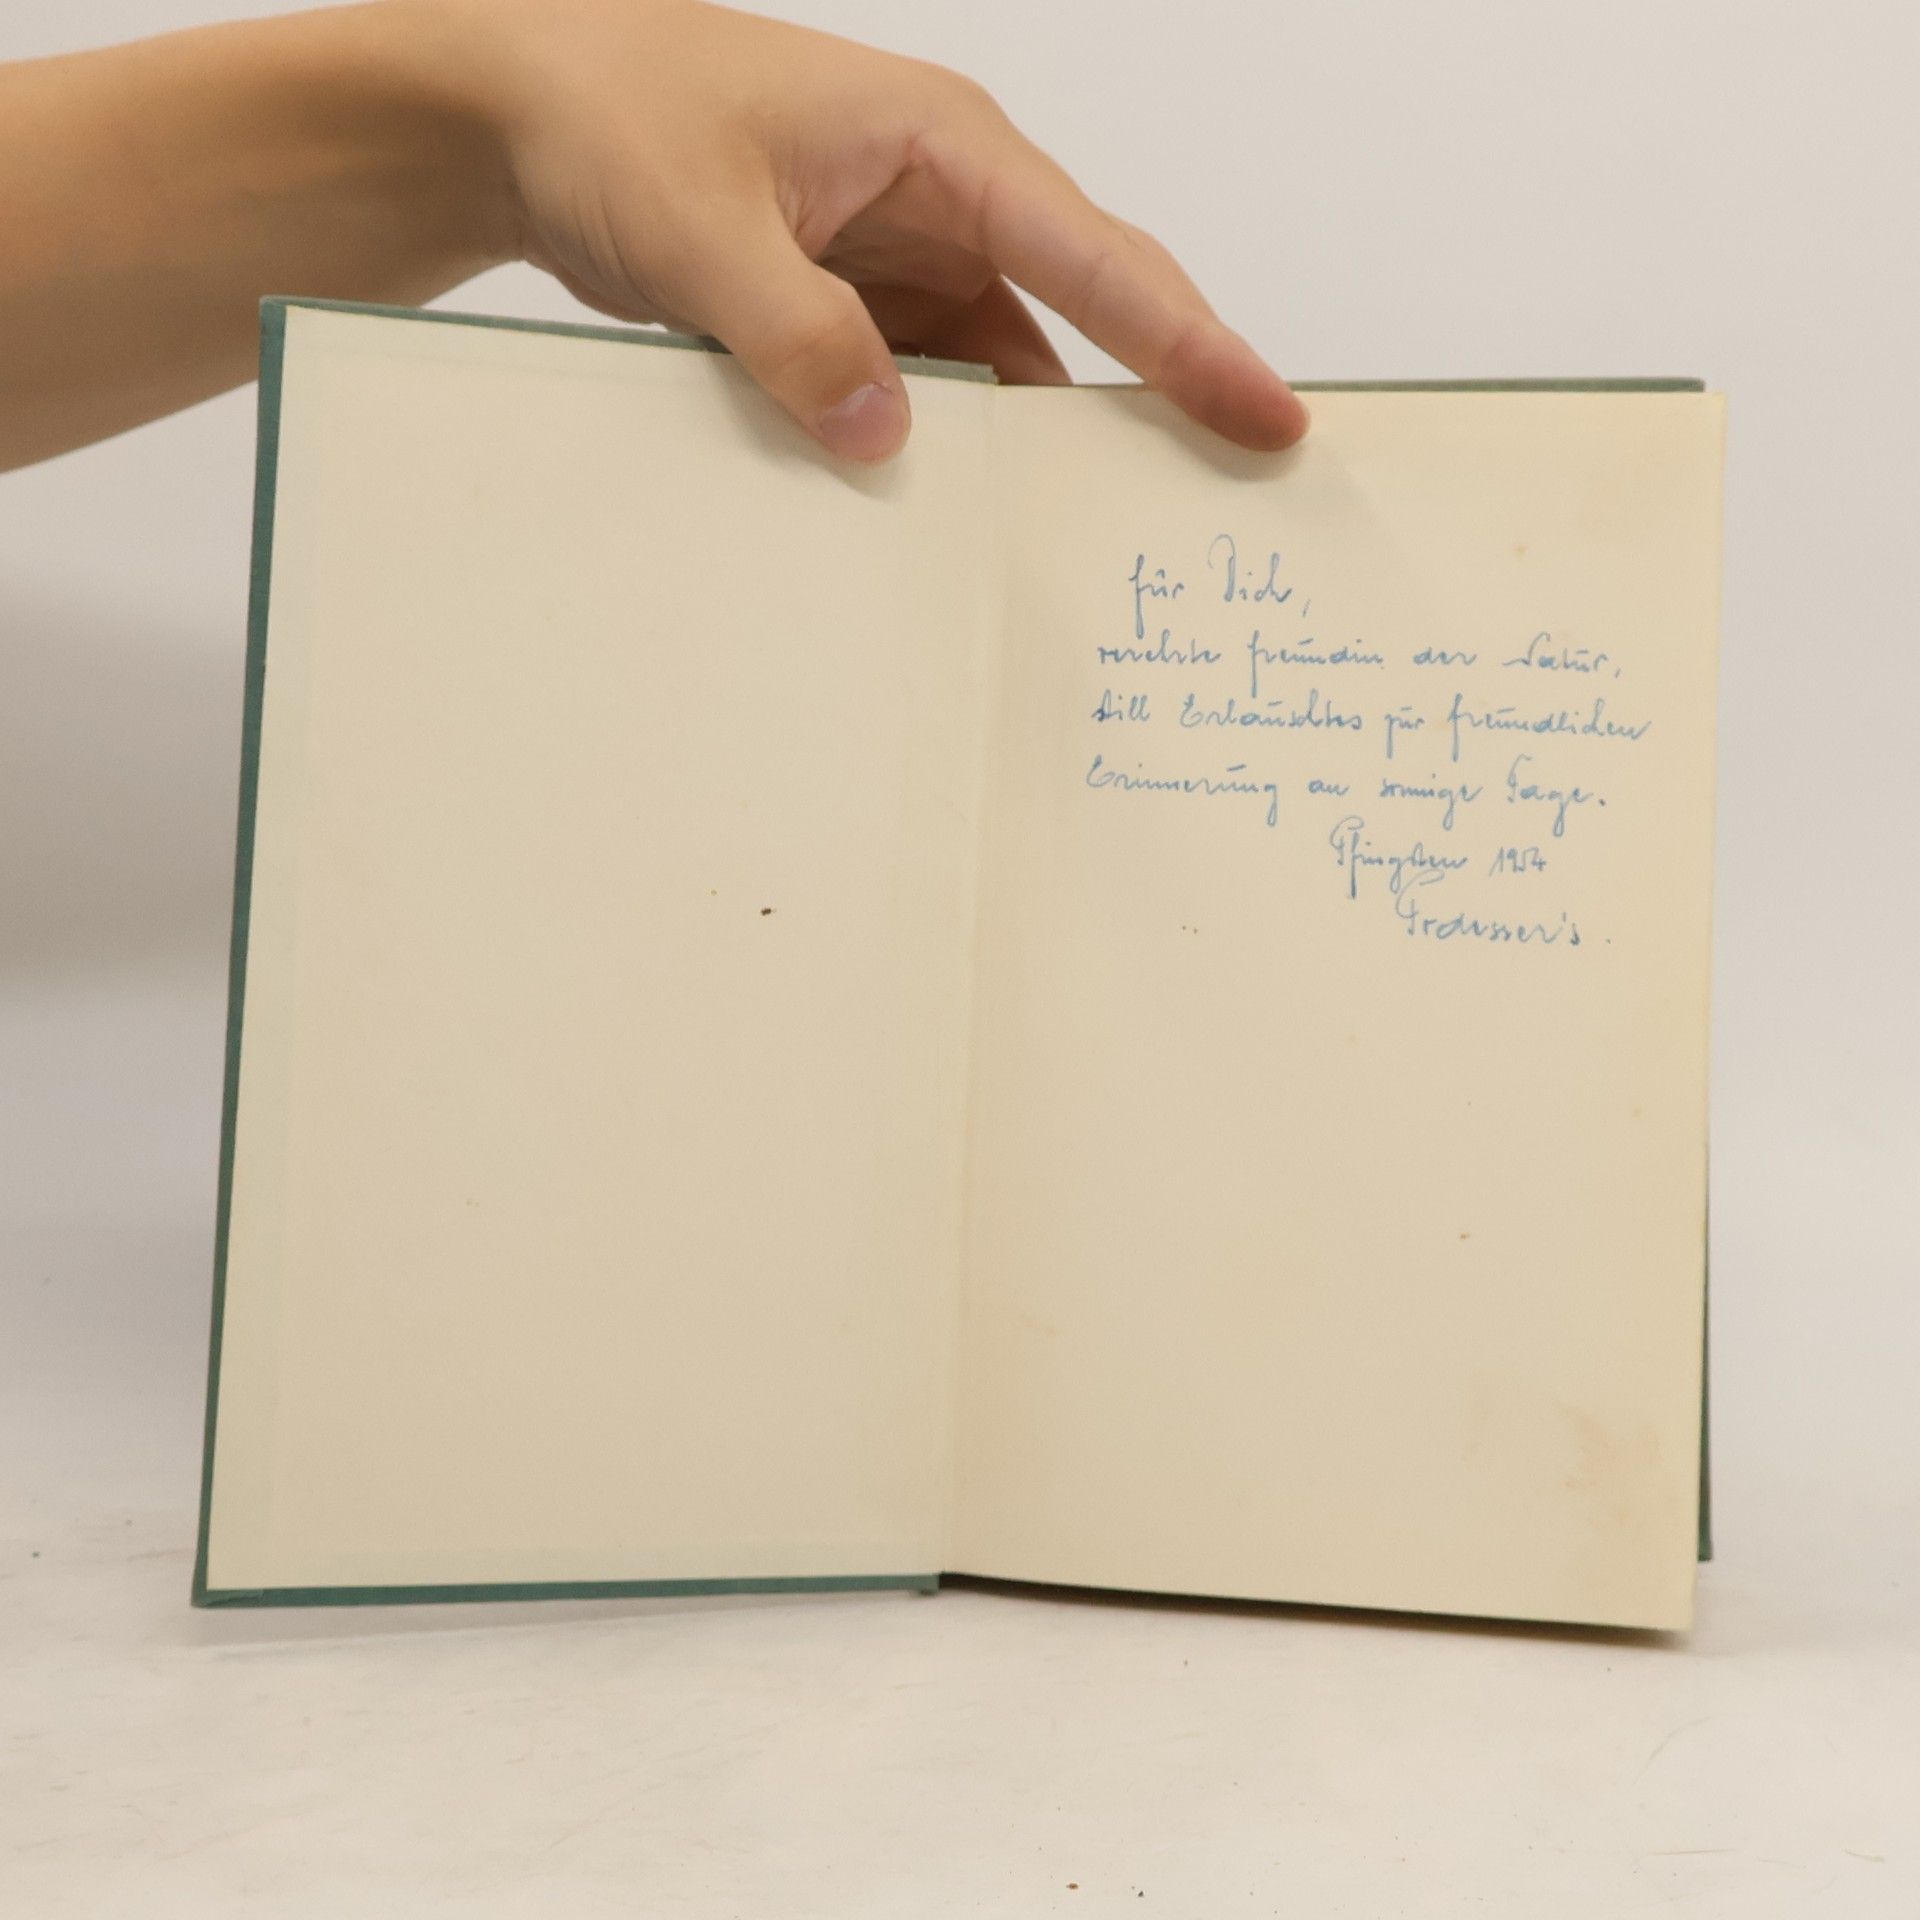 für Dich,
verehrte Freundin der Natur,
still Erlauschtes zur freundlichen
Erinnerung an sonnige Tage.
Pfingsten 1954